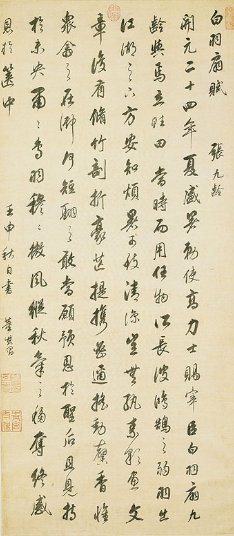 白羽扇賦 張九齡
開元二十四年夏盛暑勅使高力士賜宰臣白羽扇九
齡與焉立賦曰當時而用任物所長彼鴻鵠之弱羽生
江湖之下方安知煩暑可致清涼豈無紈素彩畫文
章復有脩竹剖析毫芒提攜密邇搖動馨香惟
衆珍之在御何短翮之敢當顧恩於聖后且見持
於未央肅肅白羽穆穆微風縱秋氣之移奪終感
恩於篋中 壬申秋日書 董其昌